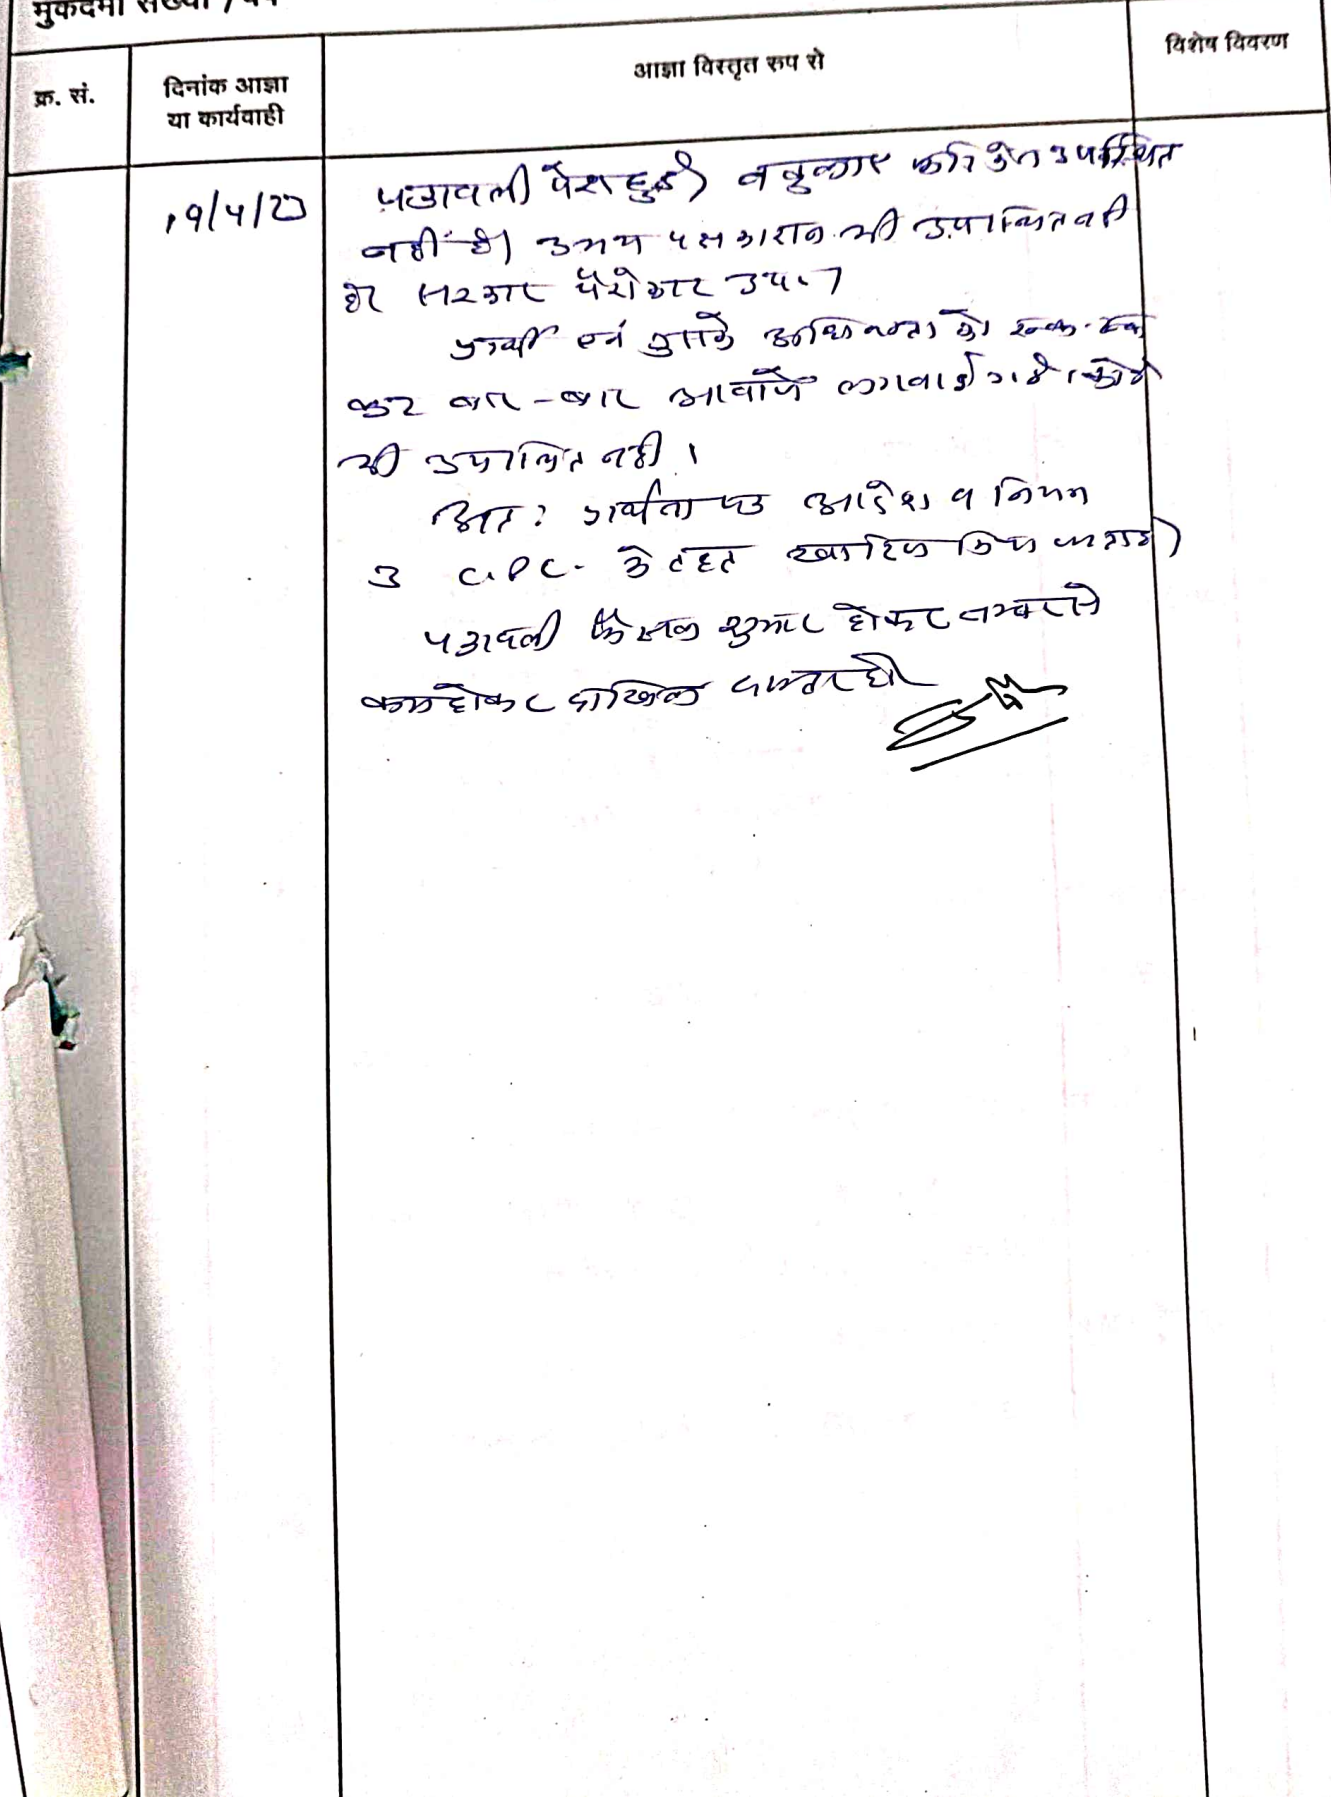 मुकदमा संख्या /
क्र. सं.
दिनांक आज्ञा
या कार्यवाही
आज्ञा विस्तृत रुप से
विशेष विवरण
19/4/23
पत्रावली पेश हुई। वकुलाए फरिकेन उपस्थित
नहीं है। उभय पक्षकारान भी उपस्थित नही
है। सरकार पैरोकार उप.।
प्रार्थी एवं उसके अधिवक्ता को रूक-रूक
कर बार-बार आवाजें लगवाई गई। कोई
भी उपस्थित नही।
अत: प्रार्थना पत्र आदेश 9 नियम
3 C.P.C. के तहत खारिज किया जाता है।
पत्रावली फैसल शुमार होकर नम्बर से
कम होकर दाखिल दफ्तर हो।